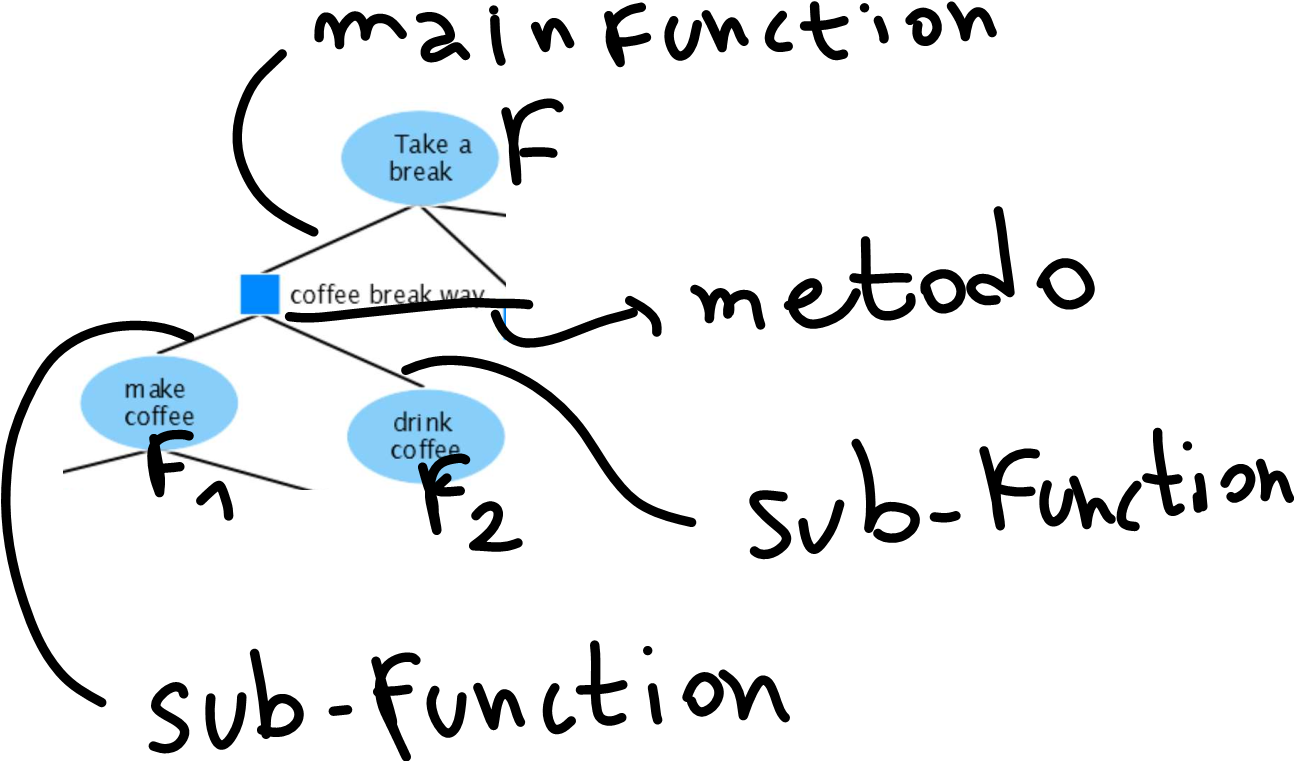 main function
Take a
break
F
coffee break way
metodo
make
coffee
F1
drink
coffee
F2
sub-function
sub-function